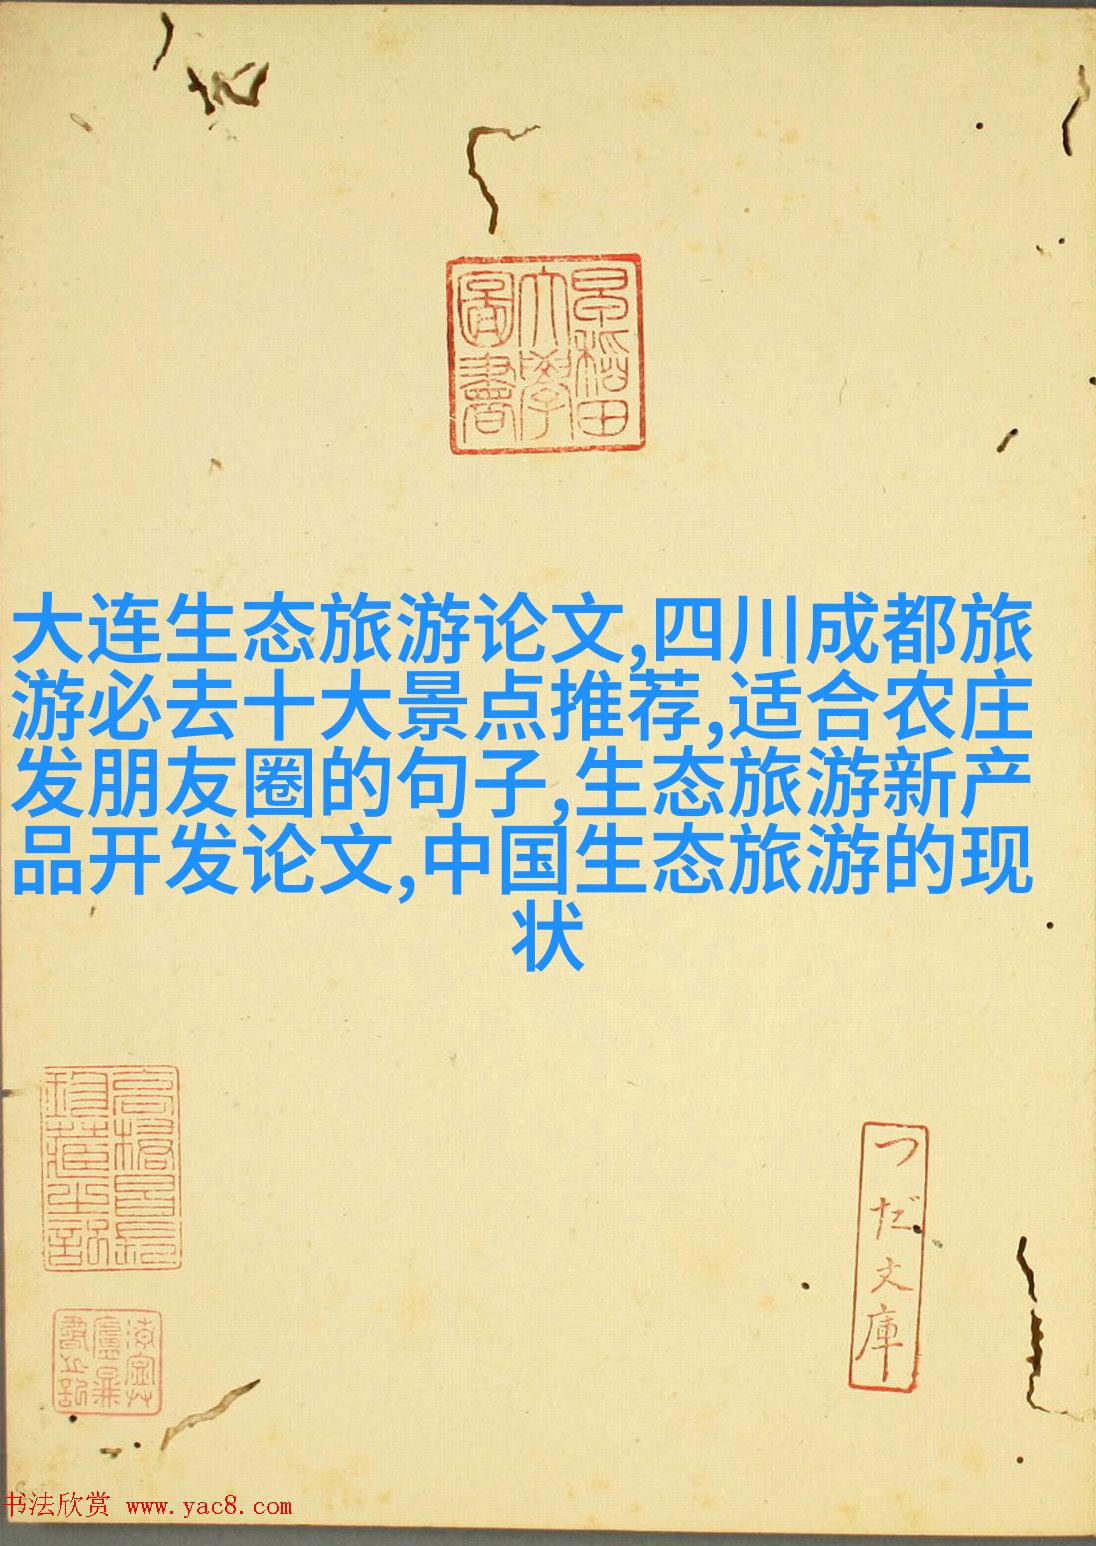 早稻田
大學
圖書
大连生态旅游论文,四川成都旅
游必去十大景点推荐,适合农庄
发朋友圈的句子,生态旅游新产
品开发论文,中国生态旅游的现
状
つだ文庫
书法欣赏 www.yac8.com